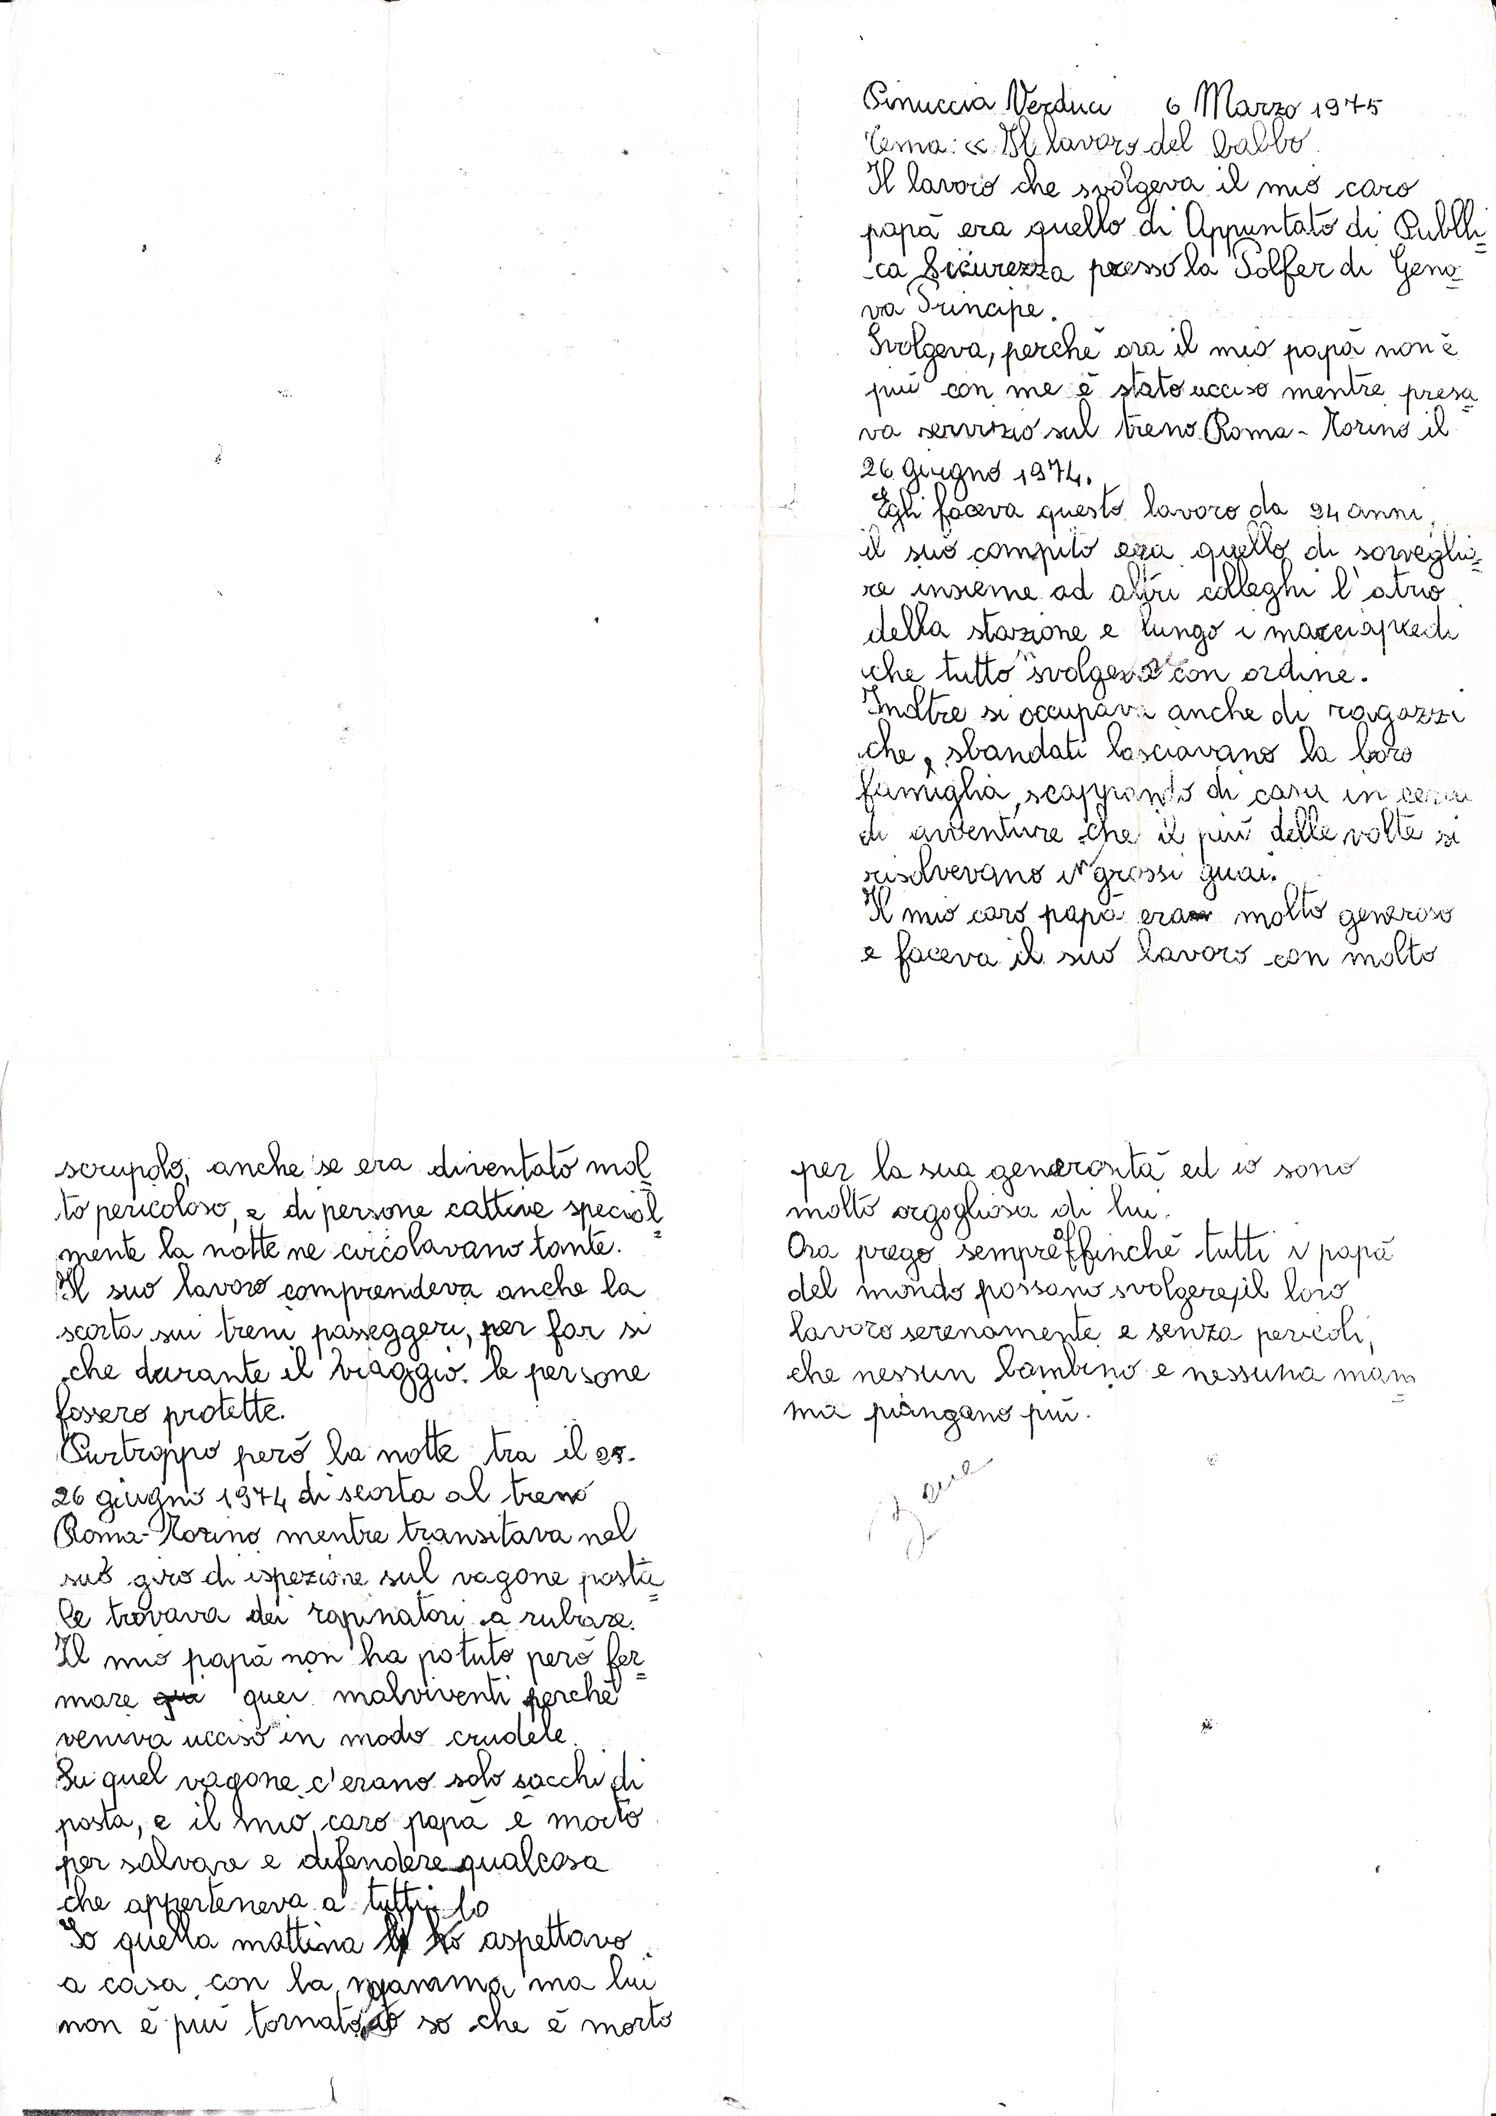 Pinuccia Verduci 6 Marzo 1975
Tema: « Il lavoro del babbo
Il lavoro che svolgeva il mio caro
papà era quello di Appuntato di Pubbli=
ca Sicurezza presso la Polfer di Geno=
va Principe.
Svolgeva, perché ora il mio papà non è
più con me è stato ucciso mentre presa=
va servizio sul treno Roma-Torino il
26 giugno 1974.
Egli faceva questo lavoro da 24 anni,
il suo compito era quello di sorveglia=
re insieme ad altri colleghi l'atrio
della stazione e lungo i marciapiedi
che tutto svolgeva con ordine.
Inoltre si occupava anche di ragazzi
che, sbandati lasciavano la loro
famiglia, scappando di casa in cerca
di avventure che il più delle volte si
risolvevano in grossi guai.
Il mio caro papà era molto generoso
e faceva il suo lavoro con molto
scrupolo, anche se era diventato mol=
to pericoloso, e di persone cattive special=
mente la notte ne circolavano tante.
Il suo lavoro comprendeva anche la
scorta sui treni passeggeri, per far si
che durante il viaggio le persone
fossero protette.
Purtroppo però la notte tra il 25-
26 giugno 1974 di scorta al treno
Roma-Torino mentre transitava nel
suo giro di ispezione sul vagone posta=
le trovava dei rapinatori a rubare.
Il mio papà non ha potuto però fer=
mare quei malviventi perché
veniva ucciso in modo crudele.
Su quel vagone c'erano solo sacchi di
posta, e il mio caro papà è morto
per salvare e difendere qualcosa
che apparteneva a tutti.
Io quella mattina lo aspettavo
a casa con la mamma ma lui
non è più tornato, so che è morto
per la sua generosità ed io sono
molto orgogliosa di lui.
Ora prego sempre affinché tutti i papà
del mondo possano svolgere il loro
lavoro serenamente e senza pericoli,
che nessun bambino e nessuna mam=
ma piangano più.